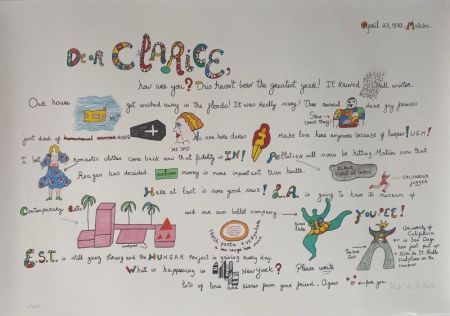 April 23, 1983. Malibu.
Dear CLARICE,
how are you? This hasn't been the greatest year! It rained all winter.
Our house got washed away in the floods! It was really messy! Then several dear gay friends
just died of AIDS No one here dares Make love here anymore because of herpes! UGH!
ME SAD
I bet romantic clothes come back now that fidelity is IN! Pollution will soon be hitting Malibu now that
Reagan has decided money is more important than health.
BLACK CLOUD OF CARBON
CALIFORNIA JOGGER
Here at last is some good news! L.A. is going to have its museum of
Contemporary Arts! and our own ballet company YOUPEE!
University of California in San Diego
Niki de St. Phalle sculpture on the campus
E.S.T. is still going strong and the HUNGER Project is growing every day.
What is happening in NEW YORK? Please write
lots of love and kisses from your friend. Agnes for you.
Niki de St Phalle